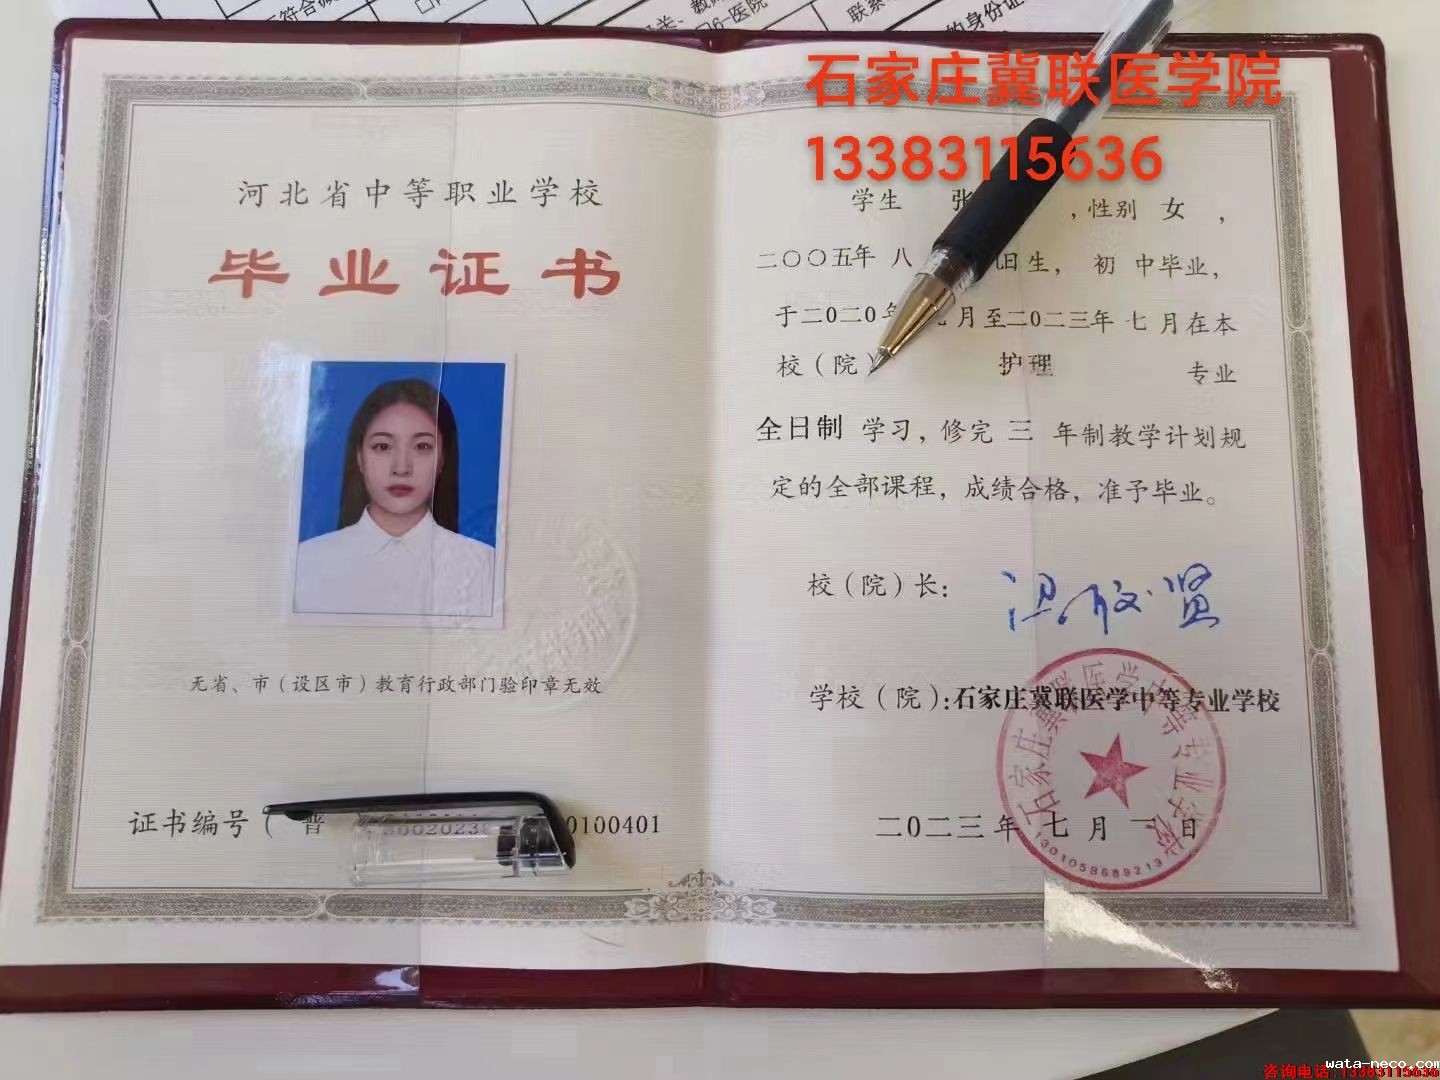 石家庄冀联医学院
13383115636
河北省中等职业学校
毕业证书
无省、市（设区市）教育行政部门验印章无效
证书编号（普
0100401
学生 张 ，性别 女 ，
二〇〇五年 八 日生， 初 中毕业，
于二0二0年 月至二0二三年 七 月在本
校（院） 护理 专业
全日制 学习，修完 三 年制教学计划规
定的全部课程，成绩合格，准予毕业。
校（院）长：
学校（院）：石家庄冀联医学中等专业学校
二0二三年 七 月 一 日
石家庄冀联医学中等专业学校
1301058689213
6-医院
的身份证
wata-neco.com
咨询电话 13383115636